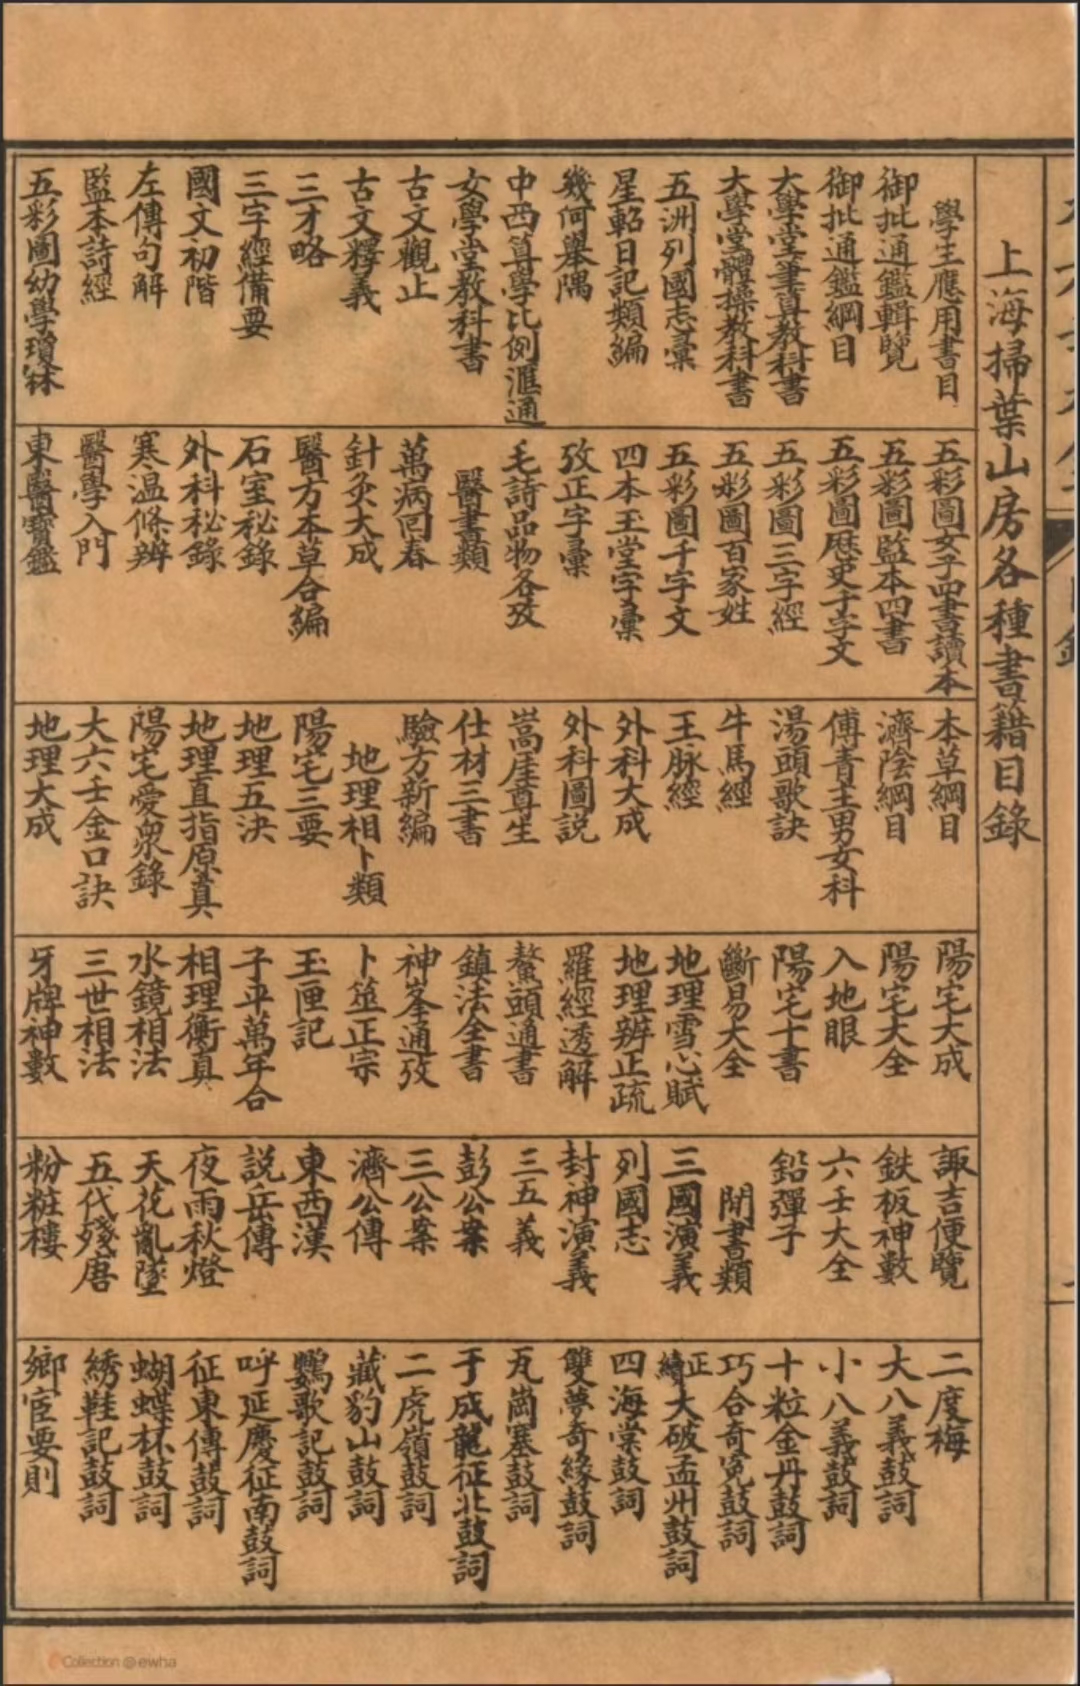 上海掃葉山房各種書籍目錄
學生應用書目
御批通鑑輯覽
御批通鑑綱目
大學堂筆算教科書
大學堂體操教科書
五洲列國志彙
星軺日記類編
幾何舉隅
中西算學比例滙通
女學堂教科書
古文觀止
古文釋義
三才略
三字經備要
國文初階
左傳句解
監本詩經
五彩圖幼學瓊林
五彩圖女子四書讀本
五彩圖監本四書
五彩圖歷史千字文
五彩圖三字經
五彩圖百家姓
五彩圖千字文
四本玉堂字彙
攷正字彙
毛詩品物各攷
醫書類
萬病回春
針灸大成
醫方本草合編
石室秘錄
外科秘錄
寒温條辨
醫學入門
東醫寶鑑
本草綱目
濟陰綱目
傅青主男女科
湯頭歌訣
牛馬經
王脉經
外科大成
外科圖説
嵩厓尊生
仕材三書
驗方新編
地理相卜類
陽宅三要
地理五決
地理直指原真
陽宅愛衆錄
大六壬金口訣
地理大成
陽宅大成
陽宅大全
入地眼
陽宅十書
斷易大全
地理雪心賦
地理辨正疏
羅經透解
鰲頭通書
鎮法全書
神峯通攷
卜筮正宗
玉匣記
子平萬年合
相理衡真
水鏡相法
三世相法
牙牌神數
諏吉便覽
鉄板神數
六壬大全
鉛彈子
閒書類
三國演義
列國志
封神演義
三五義
彭公案
三公案
濟公傳
東西漢
説岳傳
夜雨秋燈
天花亂墜
五代殘唐
粉粧樓
二度梅
大八義鼓詞
小八義鼓詞
十粒金丹鼓詞
巧合奇冤鼓詞
正續大破孟州鼓詞
四海棠鼓詞
雙夢奇緣鼓詞
瓦崗寨鼓詞
于成龍征北鼓詞
二虎嶺鼓詞
藏豹山鼓詞
鸚歌記鼓詞
呼延慶征南鼓詞
征東傳鼓詞
蝴蝶杯鼓詞
綉鞋記鼓詞
鄉宦要則
Collection @ ewha